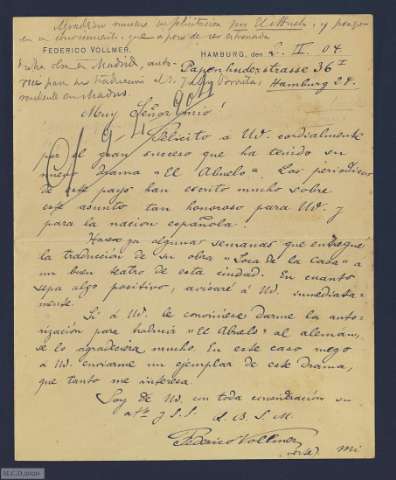 Agradezco mucho su felicitación por El Abuelo, y pongo
en su conocimiento, que a poco de ser estrenada
FEDERICO VOLLMER.
HAMBURG, den 2. IV 04
dicha obra en Madrid, auto-
Papenhuderstrasse 36 I
para su traducción al
Hamburg 24.
residente en Madrid
Muy Señor mio!
Felicito a Ud. cordialmente
por el gran suceso que ha tenido su
nuevo drama "El Abuelo". Los periodicos
de este pays han escrito mucho sobre
este asunto tan honoroso para Ud. y
para la nacion española.
Hace ya algunas semanas que entregué
la traducción de su obra "Loca de la Casa" a
un bien teatro de esta ciudad. En cuanto
sepa algo positivo, avisaré á Ud. inmediata-
mente.
Si á Ud. le conviniese darme la auto-
rización para traducir "El Abuelo" al alemán,
se lo agradeciera mucho. En este caso ruego
á Ud. enviarme un ejemplar de este drama,
que tanto me interesa.
Soy de Ud. con toda consideración su
atto y S.S. Q. B. S. M.
Federico Vollmer